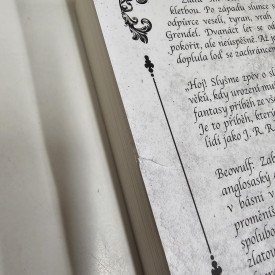 kletbou. Po západu slunce v
odpůrce veselí, tyran, vrah
Grendel. Dvanáct let se od
pokořit, ale neúspěšně. Až je
doplula loď se zachránce
„Hoj! Slyšme zpěv o
věků, kdy urození muž
fantasy příběh ze
Je to příběh, který
lidí jako J. R. R.
Beowulf. Zák
anglosaský
v básni v
proměni
spolubo
zlatov